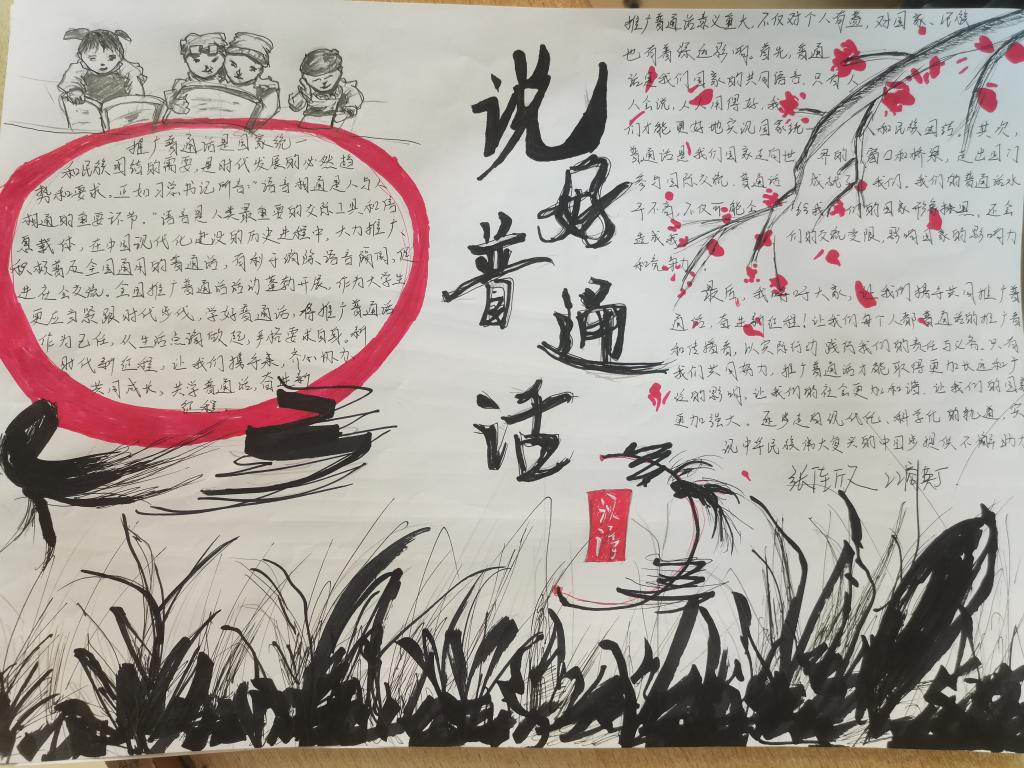 说好普通话
推广普通话是国家统一
和民族团结的需要,是时代发展的必然趋
势和要求。正如习总书记所言:“语言相通是人与人
相通的重要环节。”语言是人类最重要的交际工具和信
息载体,在中国现代化建设的历史进程中,大力推广、
积极普及全国通用的普通话,有利于消除语言隔阂,促
进社会交流。全国推广普通话活动蓬勃开展,作为大学生
更应当紧跟时代步伐,学好普通话,将推广普通话
作为己任,从生活点滴做起,严格要求自身。新
时代新征程,让我们携手来,齐心协力,
共同成长,共学普通话,奋进新
征程。
推广普通话意义重大,不仅对个人有益,对国家、民族
也有着深远影响。首先,普通
话是我们国家的共同语言,只有
人人会说,人人用得好,我
们才能更好地实现国家统一 人和民族团结。其次,
普通话是我们国家走向世 界的 窗口和桥梁,走出国门
参与国际交流,普通话 成就了 我们。我们的普通话水
平不高,不仅可能会 给我 们的国家形象抹黑,还会
造成我 们的交流受限,影响国家的影响力
和竞争力。
最后,我呼吁大家,让我们携手共同推广普
通话,奋进新征程!让我们每个人都普通话的推广者
和传播者,以实际行动践行我们的责任与义务。只有
我们共同努力,推广普通话才能取得更加长远和广
泛的影响,让我们的社会更加和谐,让我们的国家
更加强大。逐步走向现代化、科学化的轨道,实
现中华民族伟大复兴的中国梦提供不懈动力
汉语